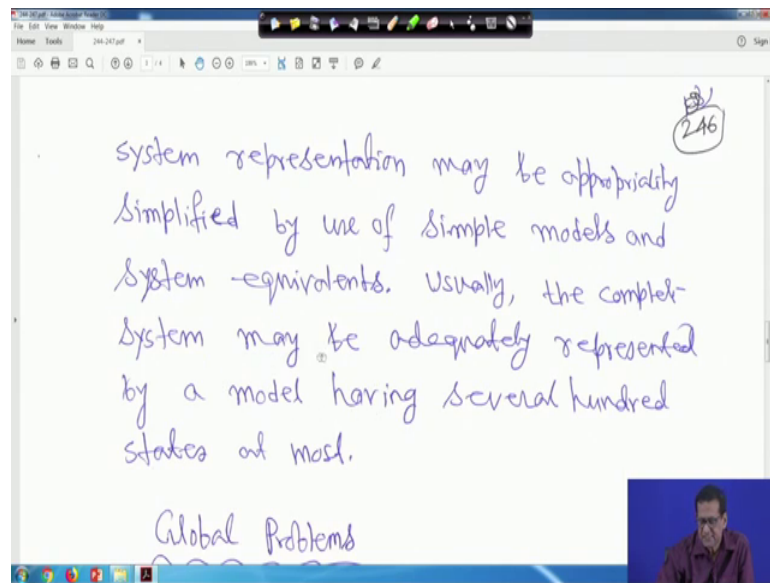 244-247.pdf - Adobe Acrobat Reader DC
File Edit View Window Help
Home Tools 244-247.pdf × Sign
246
system representation may be appropriality
simplified by use of simple models and
system equivalents. Usually, the complete
system may be adequately represented
by a model having several hundred
states at most.
Global Problems